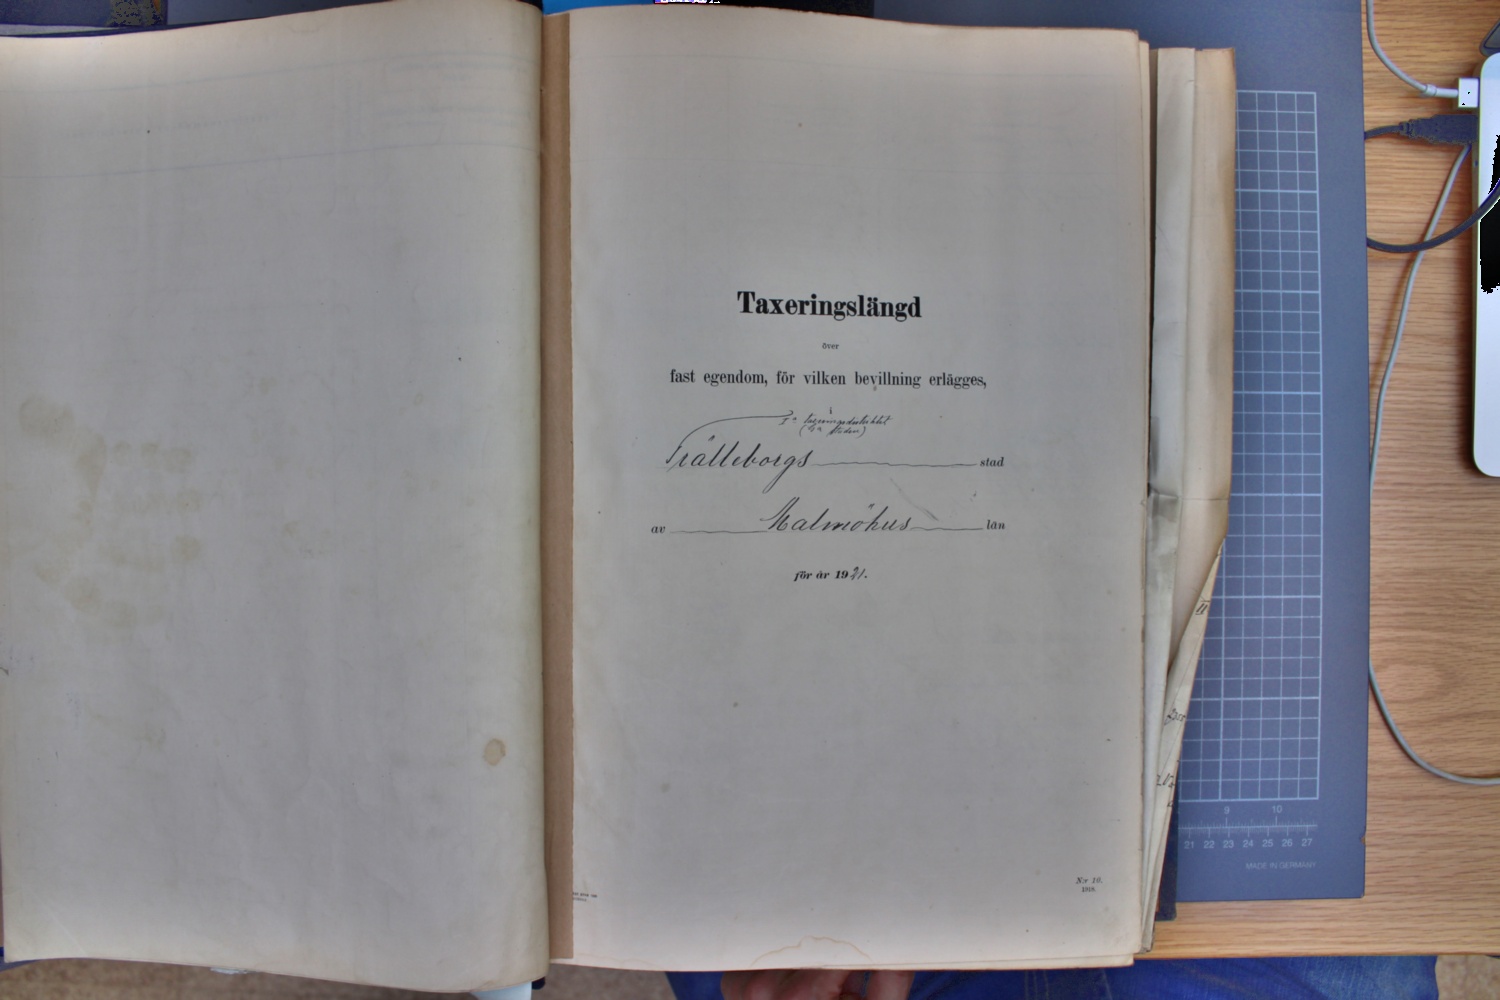 Taxeringslängd
över
fast egendom, för vilken bevillning erlägges,
i
Trälleborgs stad
av Malmöhus län
för år 1921.
N:r 10.
1918.
II
9 10
21 22 23 24 25 26 27
MADE IN GERMANY